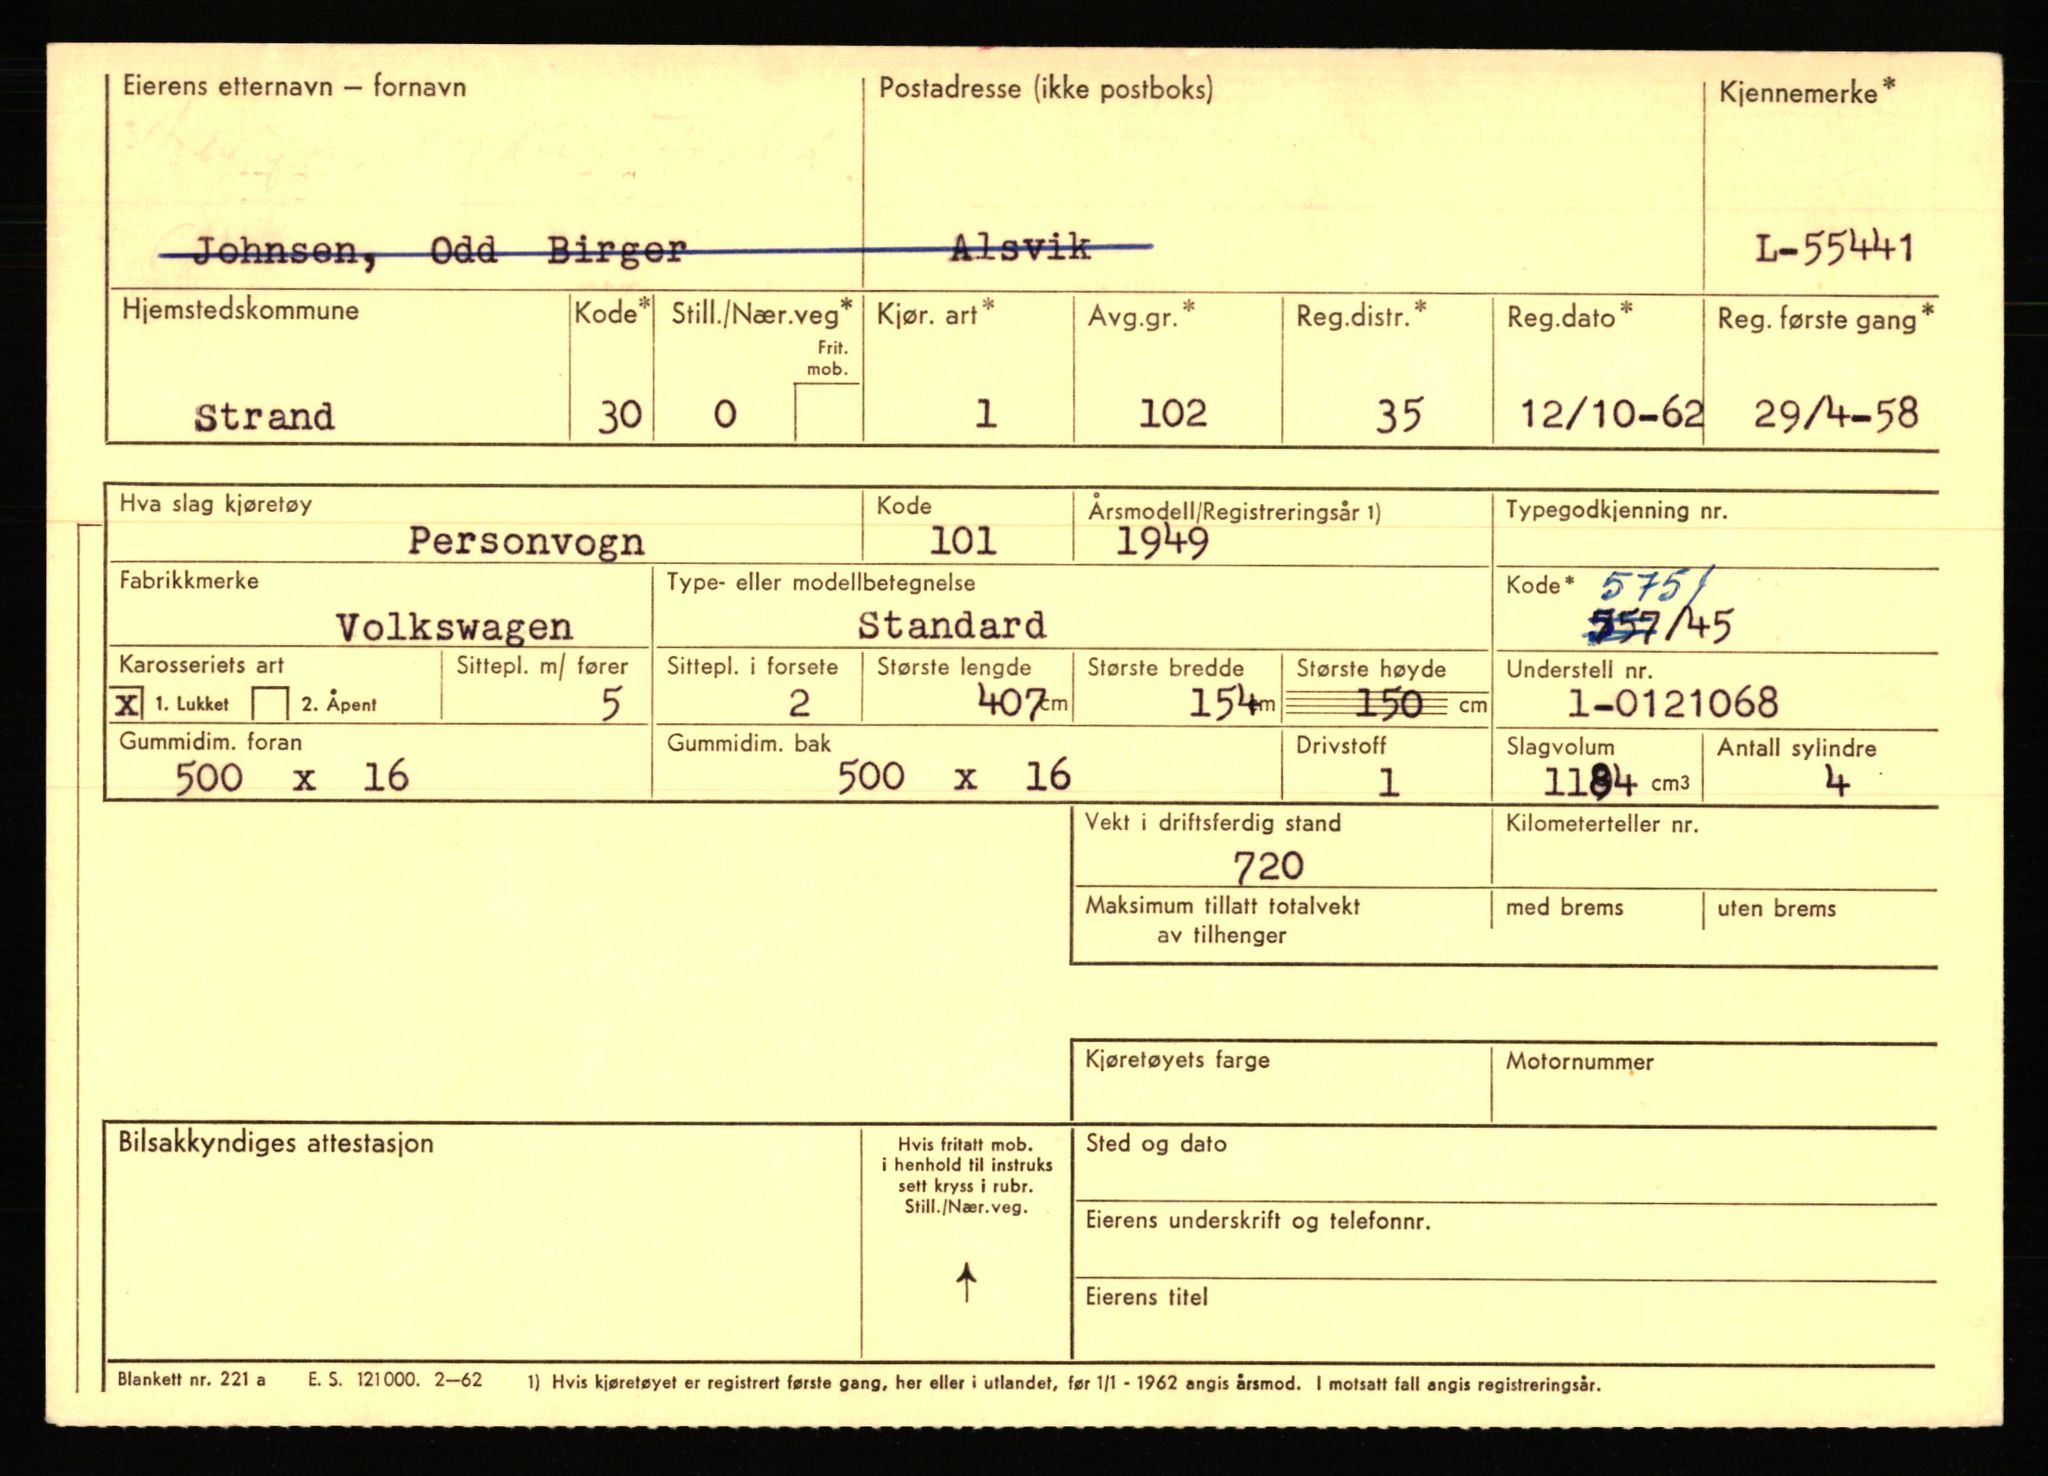 Eierens etternavn – fornavn Postadresse (ikke postboks) Kjennemerke*
Johnsen, Odd Birger Alsvik L-55441
Hjemstedskommune Kode* Still./Nær.veg* Kjør. art* Avg.gr.* Reg.distr.* Reg.dato* Reg. første gang*
Frit.
mob.
Strand 30 0 1 102 35 12/10-62 29/4-58
Hva slag kjøretøy Kode Årsmodell/Registreringsår 1) Typegodkjenning nr.
Personvogn 101 1949
Fabrikkmerke Type- eller modellbetegnelse Kode* 575/
Volkswagen Standard 557/45
Karosseriets art Sittepl. m/ fører Sittepl. i forsete Største lengde Største bredde Største høyde Understell nr.
X 1. Lukket 2. Åpent 5 2 407 cm 154 cm 150 cm 1-0121068
Gummidim. foran Gummidim. bak Drivstoff Slagvolum Antall sylindre
500 x 16 500 x 16 1 1184 cm3 4
Vekt i driftsferdig stand Kilometerteller nr.
720
Maksimum tillatt totalvekt med brems uten brems
av tilhenger
Kjøretøyets farge Motornummer
Bilsakkyndiges attestasjon Hvis fritatt mob. Sted og dato
i henhold til instruks
sett kryss i rubr.
Still./Nær.veg.
Eierens underskrift og telefonnr.
Eierens titel
Blankett nr. 221 a E. S. 121000. 2–62 1) Hvis kjøretøyet er registrert første gang, her eller i utlandet, før 1/1 - 1962 angis årsmod. I motsatt fall angis registreringsår.